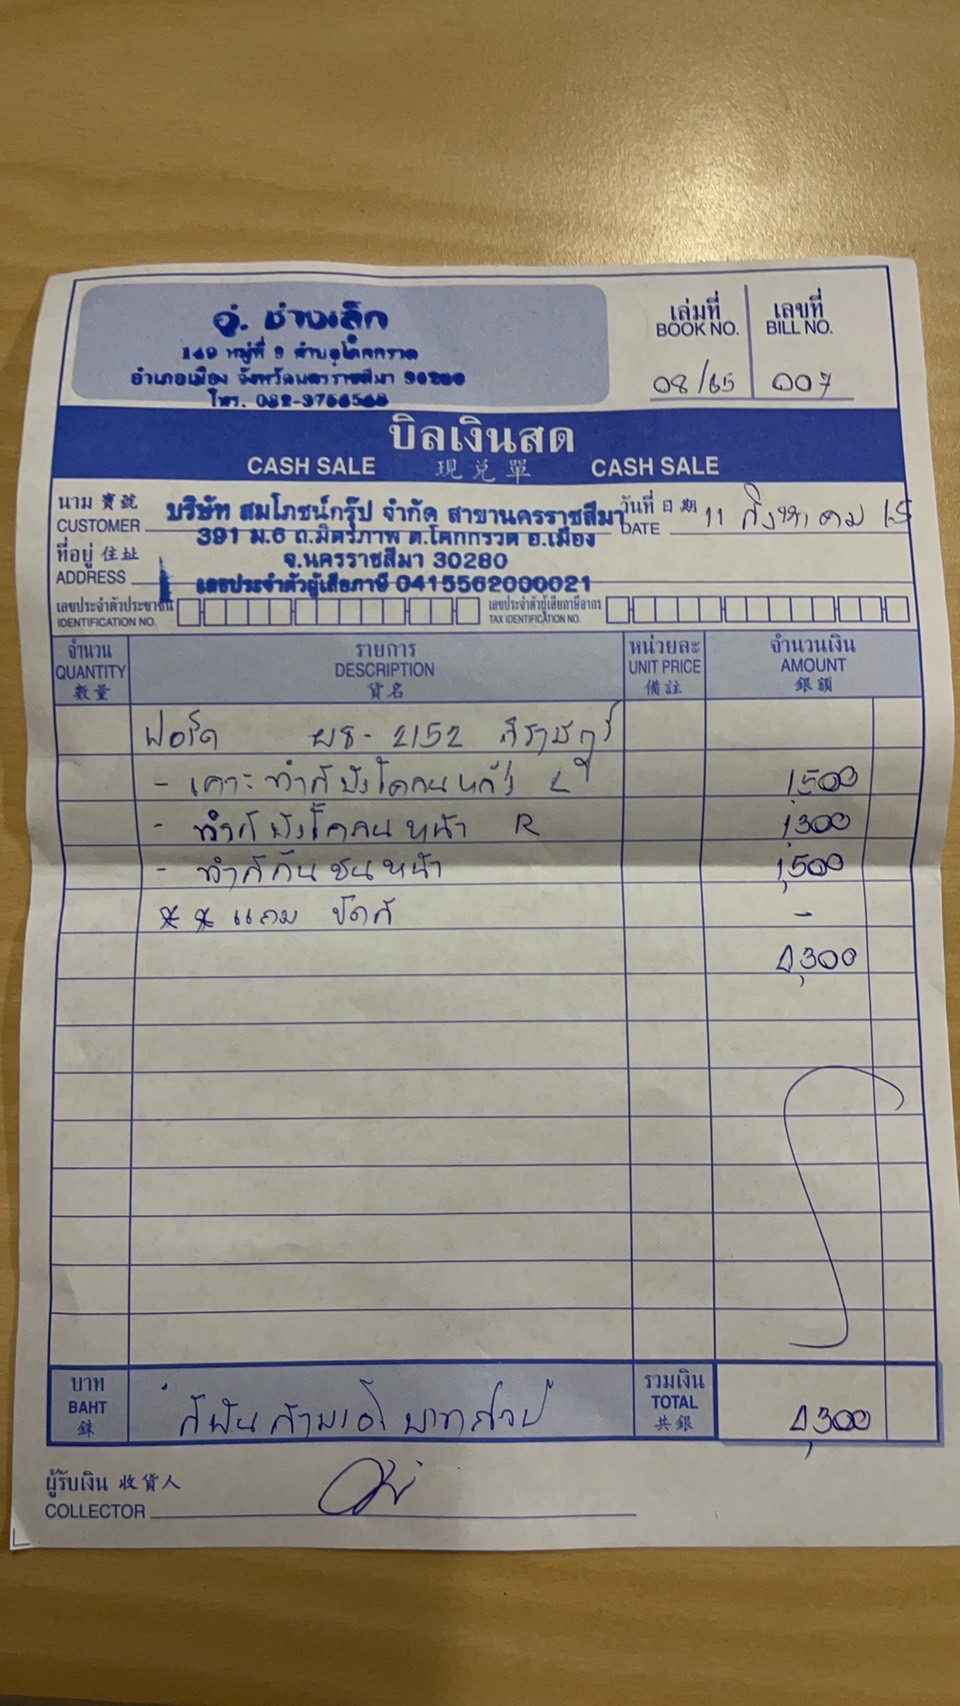 อู่. ช่างเล็ก
149 หมู่ที่ 9 ตำบลโคกกรวด
อำเภอเมือง จังหวัดนครราชสีมา 30280
โทร.
เล่มที่ เลขที่
BOOK NO. BILL NO.
08/65 007
บิลเงินสด
CASH SALE 現兌單 CASH SALE
นาม 寶號 บริษัท สมโภชน์กรุ๊ป จำกัด สาขานครราชสีมา วันที่ 日期
CUSTOMER DATE 11 สิงหาคม 65
391 ม.6 ถ.มิตรภาพ ต.โคกกรวด อ.เมือง
ที่อยู่ 住址 จ.นครราชสีมา 30280
ADDRESS เลขประจำตัวผู้เสียภาษี 0415562000021
เลขประจำตัวประชาชน เลขประจำตัวผู้เสียภาษีอากร
IDENTIFICATION NO. TAX IDENTIFICATION NO.
จำนวน รายการ หน่วยละ จำนวนเงิน
QUANTITY DESCRIPTION UNIT PRICE AMOUNT
数量 貨名 備註 銀額
ฟอร์ด 2152
- เคาะ ทำสี บังโคลนหลัง L 1,500
- ทำสี บังโคลนหน้า R 1,300
- ทำสี กันชนหน้า 1,500
** แถม ขัดสี -
4,300
บาท รวมเงิน
BAHT สี่พันสามร้อยบาทถ้วน TOTAL 4,300
銖 共銀
ผู้รับเงิน 收貨人
COLLECTOR